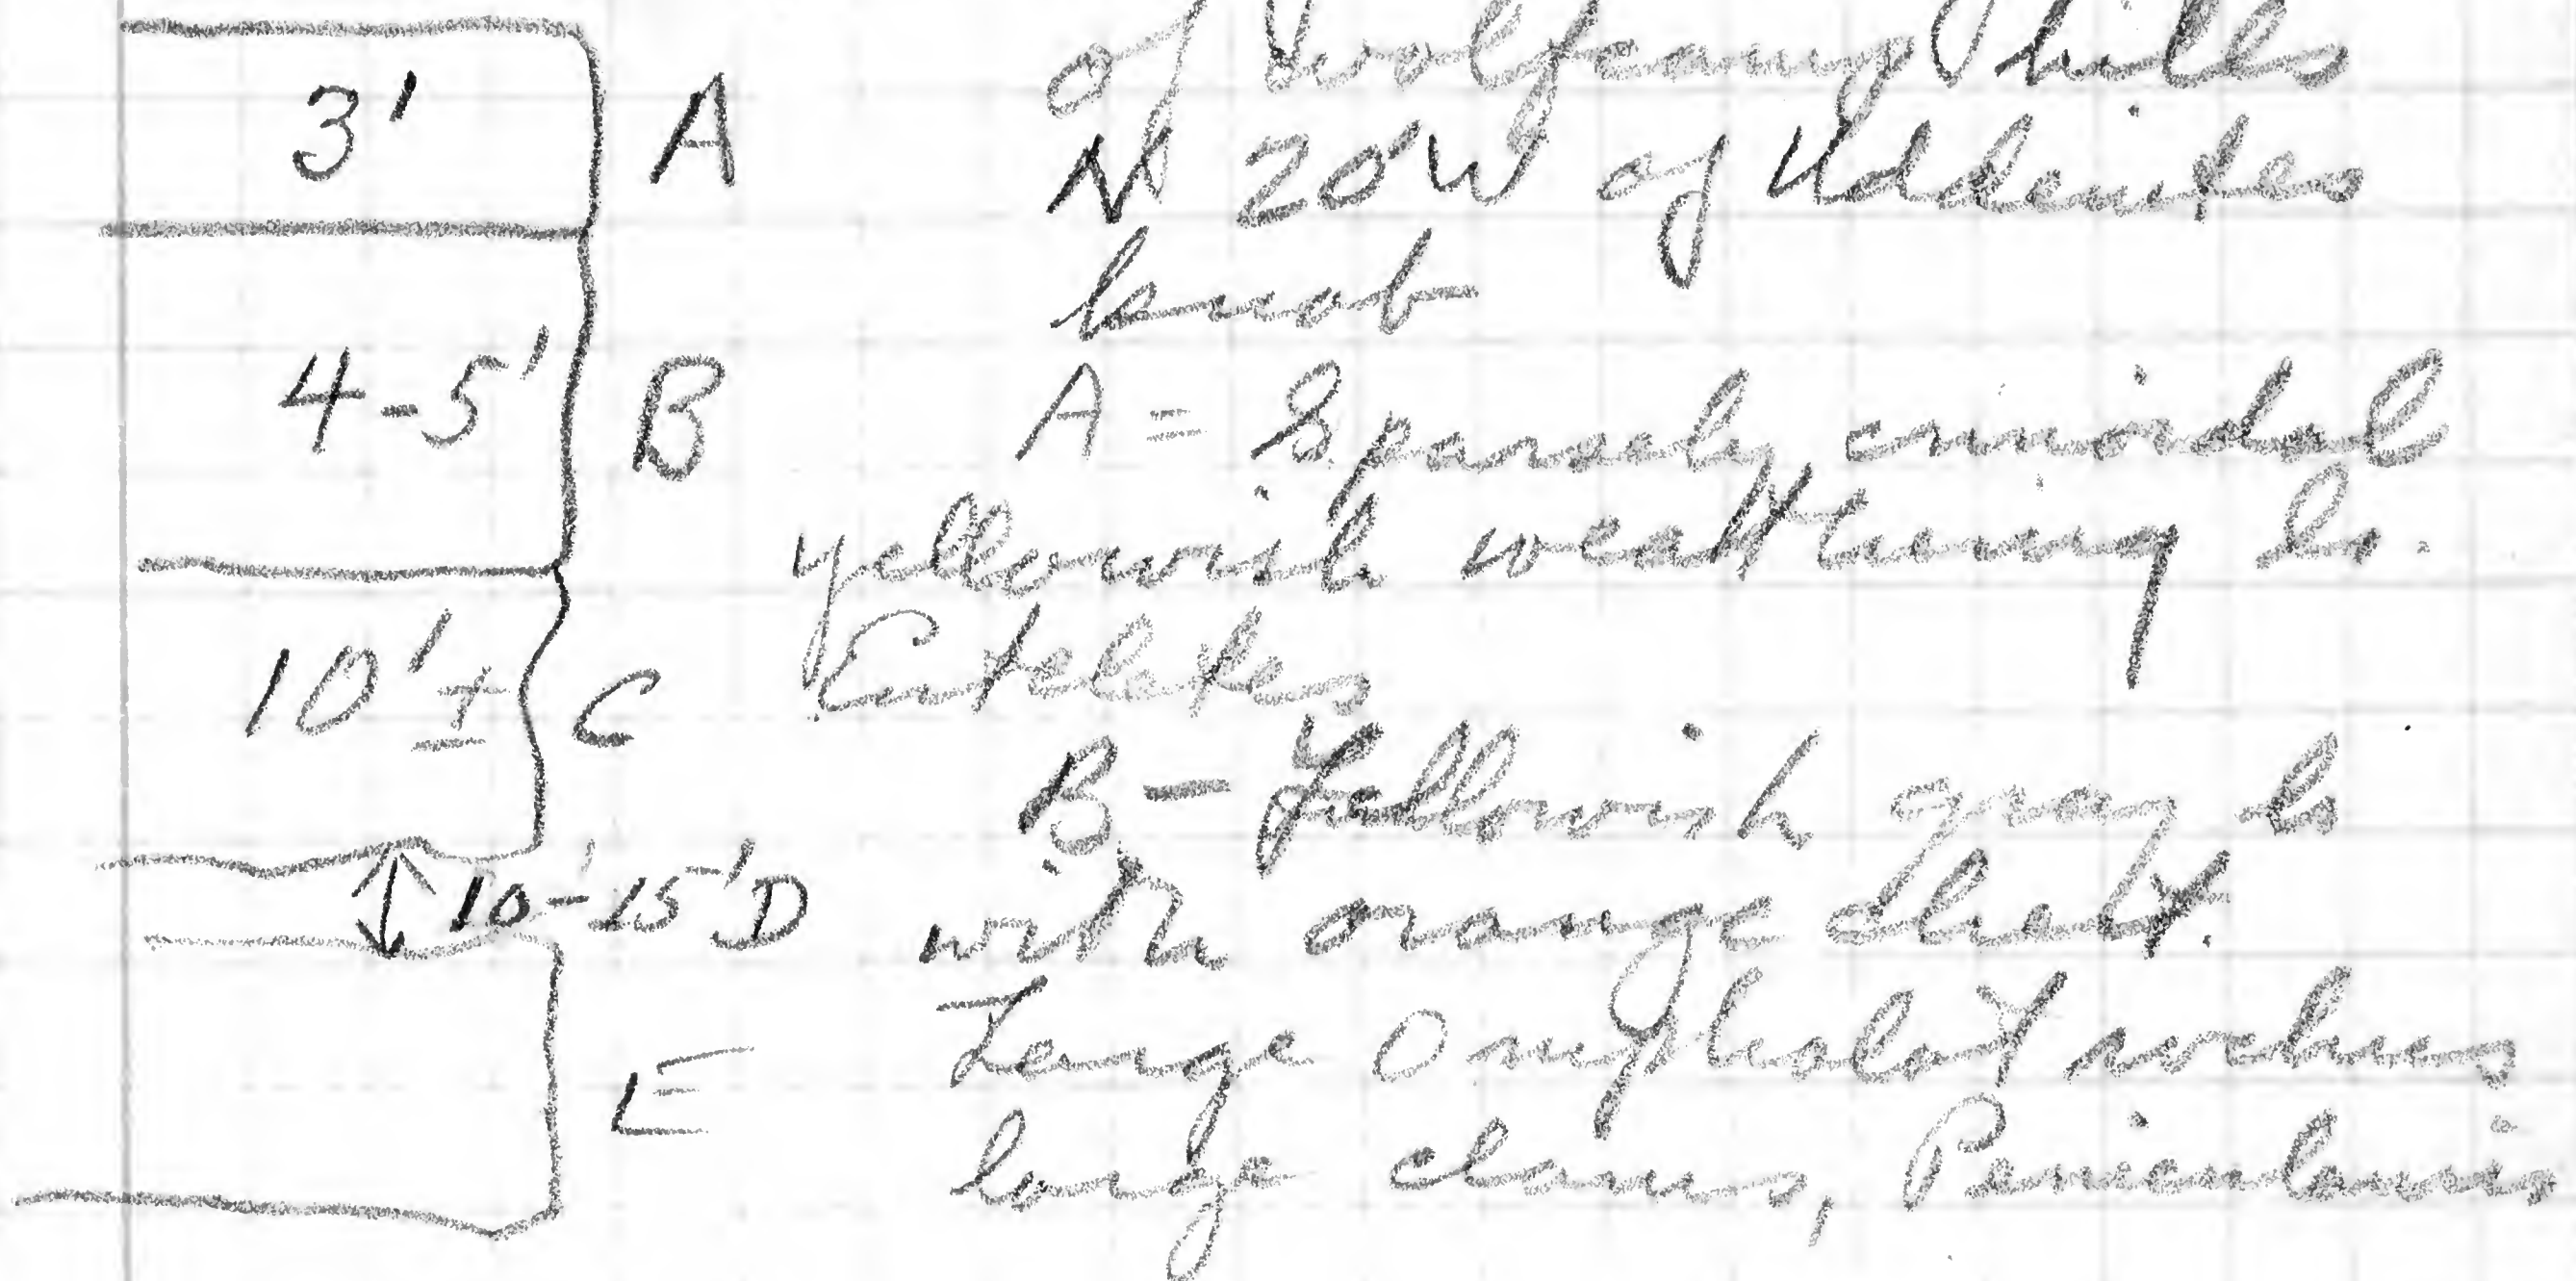 3' A
4-5' B
10'± C
10'-15' D
E
of Wolfcamp hills
N 20W of Uddenites
knob
A = Sparsely crinoidal
yellowish weathering ls.
Enteletes
B - Yellowish gray ls
with orange chert.
Large Omphalotrochus
large clams, Peniculauris